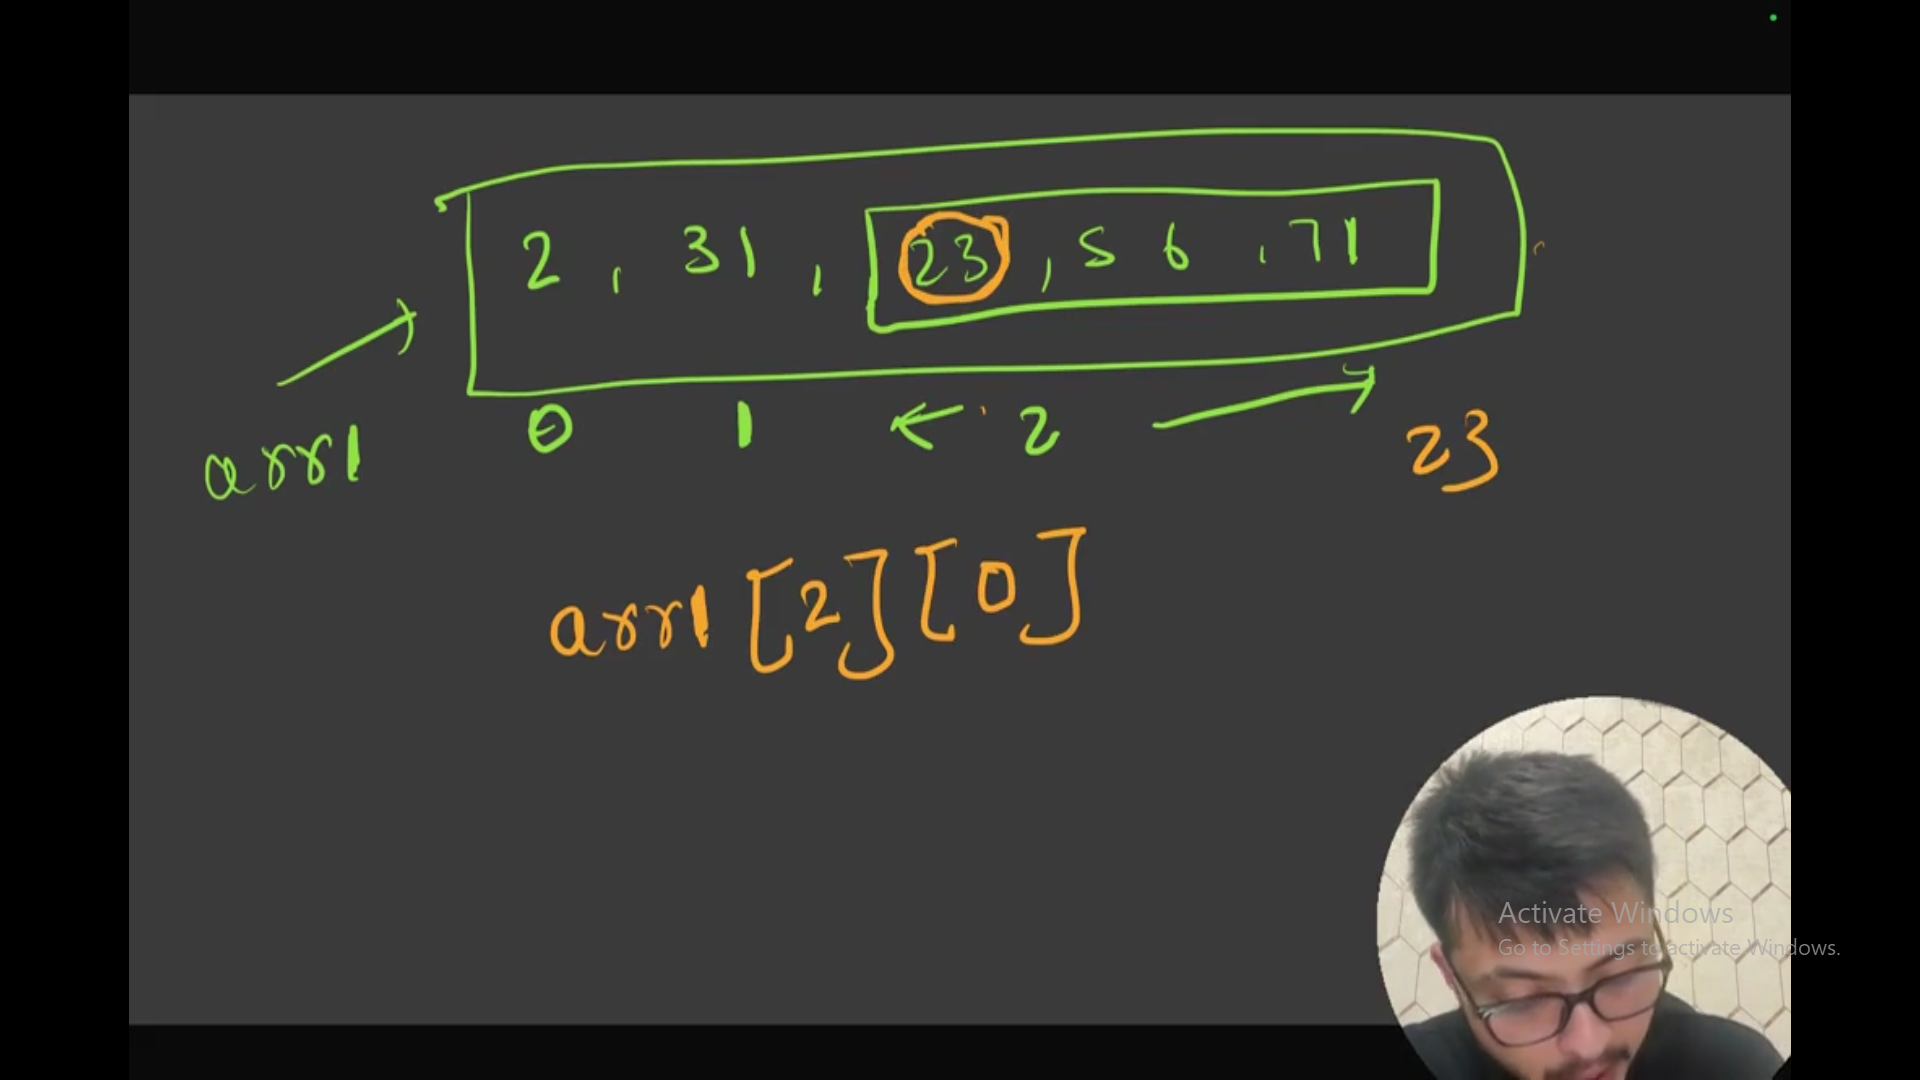 2 , 31 , 23 , 56 , 71
arr1 0 1 2 23
arr1 [2] [0]
Activate Windows
Go to Settings to activate Windows.